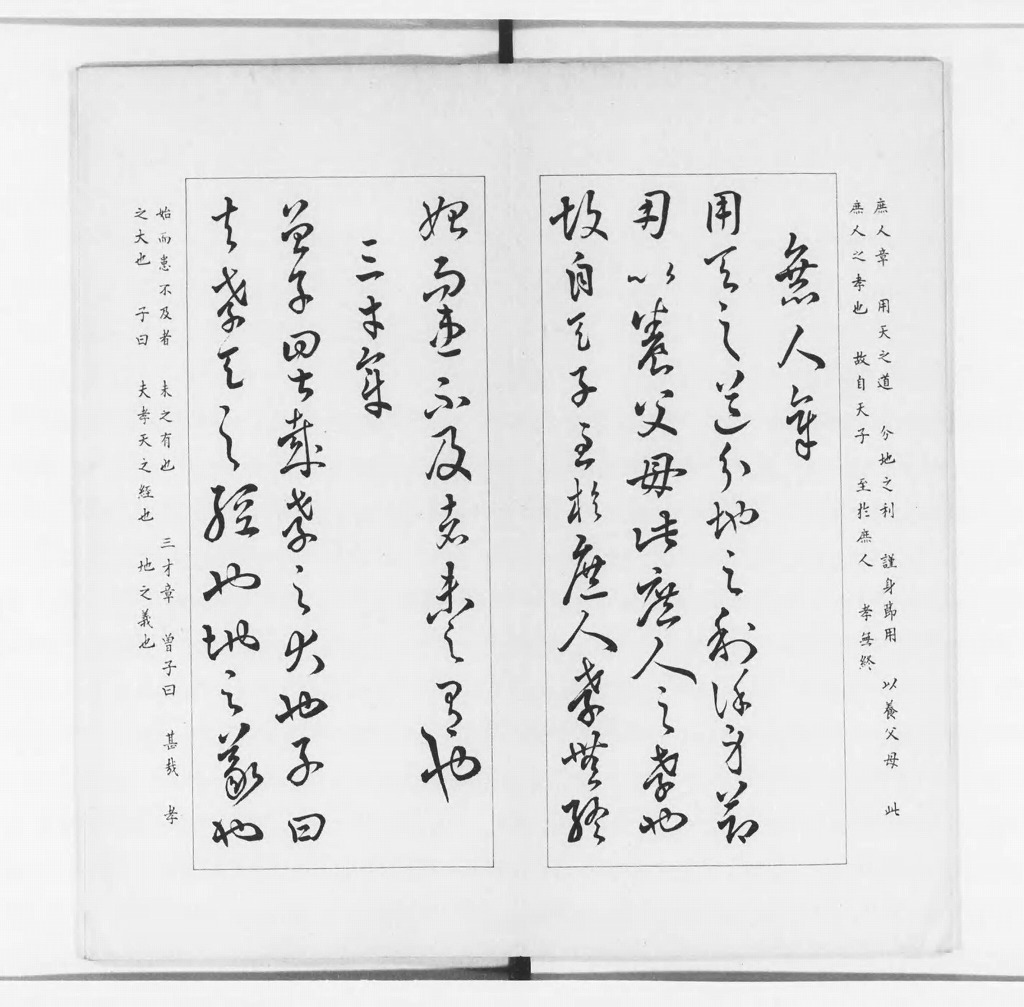 庶人章　用天之道　分地之利　謹身節用　以養父母　此
庶人之孝也　故自天子　至於庶人　孝無終
庶人章
用天之道分地之利謹身節
用以養父母此庶人之孝也
故自天子至於庶人孝無終
始而患不及者未之有也
三才章
曾子曰甚哉孝之大也子曰
夫孝天之經也地之義也
始而患不及者　未之有也　三才章　曾子曰　甚哉　孝
之大也　子曰　夫孝天之經也　地之義也